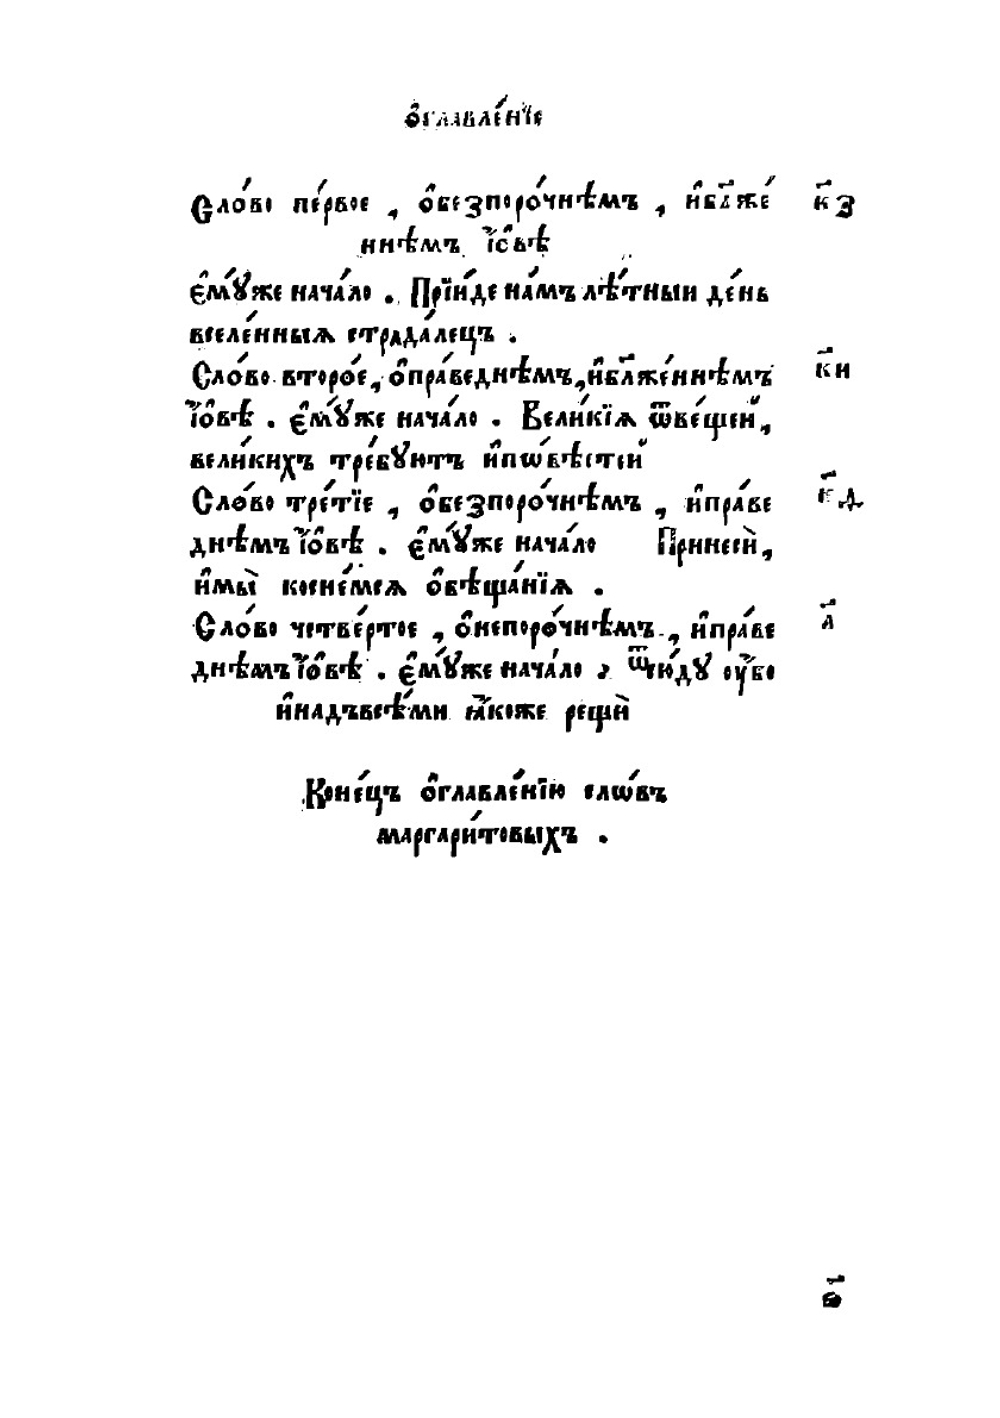 Ѻ҆главле́нїе
Сло́во пе́рвое , ѻ҆безпоро́чнѣмъ , и҆бл҃же́ к҃з
ннѣмъ і҆ѡ҆́вѣ
є҆мꙋ́же нача́ло . Прїи́де на́мъ лѣ́тныи де́нь
вселе́нныѧ страда́лецъ .
Сло́во второ́е , ѻ҆пра́веднѣмъ , и҆бл҃же́ннѣмъ к҃и
і҆́ѻвѣ . є҆мꙋ́же нача́ло . Вели́кїѧ ѿвѣ́щей ,
вели́кихъ тре́бꙋютъ и҆пѡ́вѣстей
Сло́во тре́тїе , ѻ҆безпоро́чнѣмъ , и҆пра́ве к҃д
днѣмъ і҆́ѻвѣ . є҆мꙋ́же нача́ло Принесѝ ,
и҆мы̀ косне́мсѧ ѻ҆бѣща́нїѧ .
Сло́во четве́ртое , ѻ҆непоро́чнѣмъ , и҆пра́ве л҃
днѣмъ і҆́ѻвѣ . є҆мꙋ́же нача́ло , ѿню́дꙋ ᲂу҆́бо
и҆надъвсѣ́ми ꙗ҆́коже рещѝ
Коне́цъ ѻ҆главле́нїю сло́въ
маргари́товыхъ .